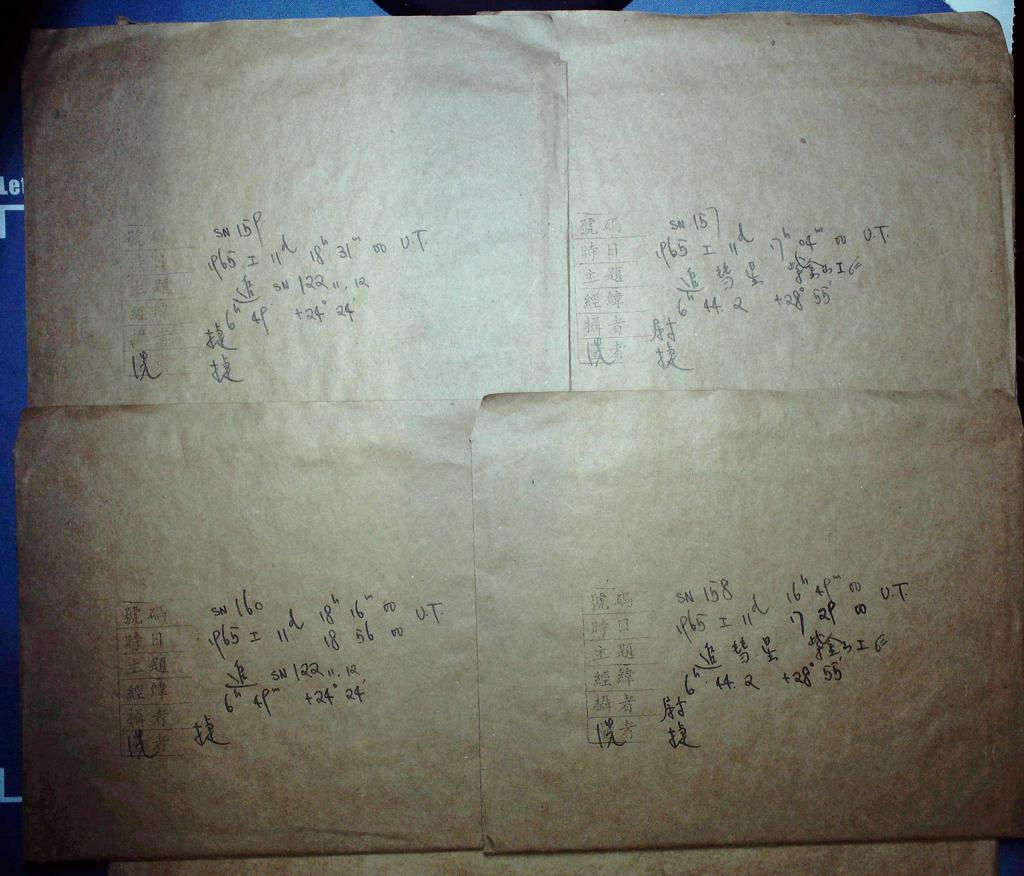 Le
號碼 SN 159
日 1965 I 11d 18h 31m 00 U.T.
主題 追 SN 122 11.12
經 6h 49 +24° 24'
者 捷
洗 捷
號碼 SN 157
時日 1965 I 11d 17h 04m 00 U.T.
主題 追 彗星 紫金山 I
經緯 6h 44.2 +28° 55'
攝者 尉
洗者 捷
號碼 SN 160
時日 1965 I 11d 18h 16m 00 U.T.
18 56 00
主題 追 SN 122 11.12
經緯 6h 49m +24° 24'
攝者 捷
洗者
號碼 SN 158
時日 1965 I 11d 16h 49m 00 U.T.
17 29 00
主題 追 彗星 紫金山 I
經緯 6h 44.2 +28° 55'
攝者 尉
洗者 捷